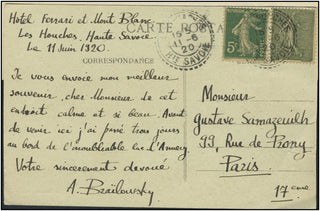 Hotel Ferrari et Mont Blanc
Les Houches. Haute Savoie
Le 11 Juin 1920.
CARTE POSTALE
CORRESPONDANCE
Je vous envoie mon meilleur
souvenir, cher Monsieur de cet
endroit calme et si beau. Avant
de venir ici j'ai passé trois jours
au bord de l'inoubliable lac d'Annecy
Votre sincerement devoué
A. Brailowsky
Monsieur
Gustave Samazeuilh
99, Rue de Prony
Paris
17eme
15 - 6
20
SAVOIE
5c